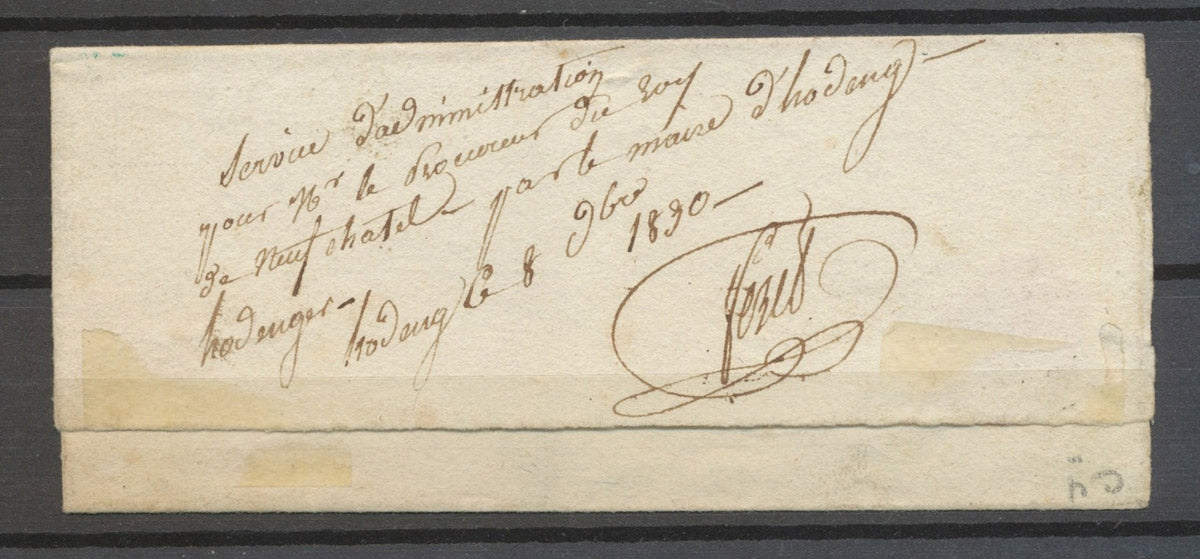 Service d'administration
pour Mr le procureur du roy
de neufchatel - par le maire d'hodeng -
hodenger -
hodeng le 8 9bre
1830 -